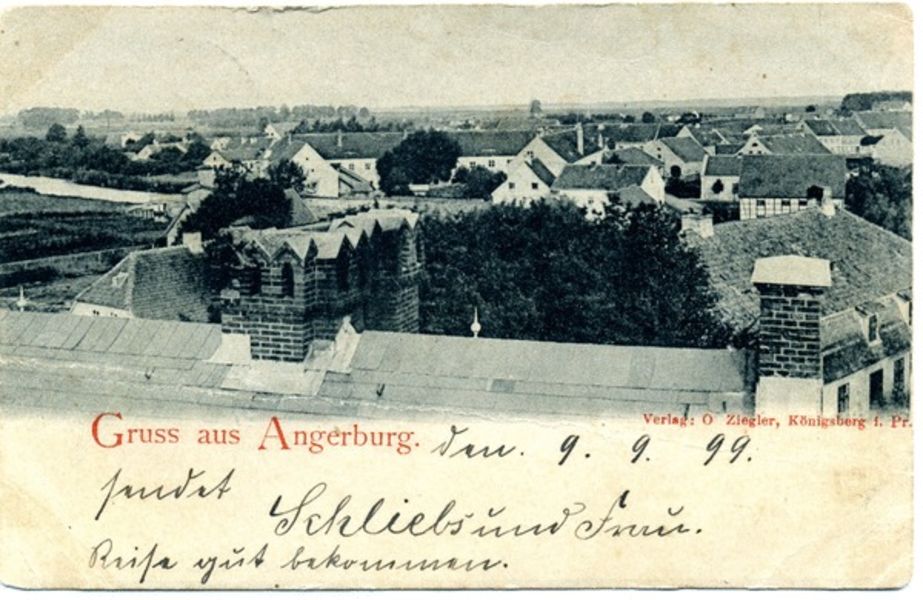 Verlag: O Ziegler, Königsberg i. Pr.
Gruss aus Angerburg. den. 9. 9. 99.
sendet
Schliebs und Frau.
Reise gut bekommen.